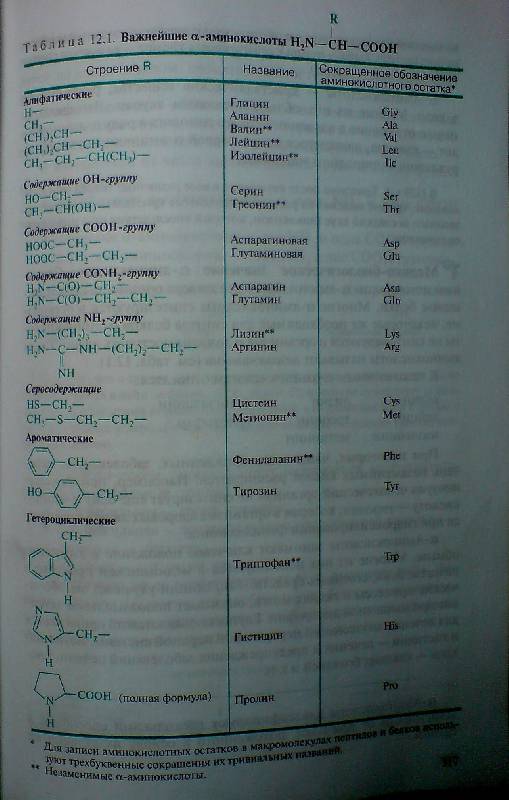 R
Таблица 12.1. Важнейшие α-аминокислоты H₂N—CH—COOH
Строение R Название Сокращённое обозначение аминокислотного остатка*
Алифатические
H— Глицин Gly
CH₃— Аланин Ala
(CH₃)₂CH— Валин** Val
(CH₃)₂CH—CH₂— Лейцин** Leu
CH₃—CH₂—CH(CH₃)— Изолейцин** Ile
Содержащие OH-группу
HO—CH₂— Серин Ser
CH₃—CH(OH)— Треонин** Thr
Содержащие COOH-группу
HOOC—CH₂— Аспарагиновая Asp
HOOC—CH₂—CH₂— Глутаминовая Glu
Содержащие CONH₂-группу
H₂N—C(O)—CH₂— Аспарагин Asn
H₂N—C(O)—CH₂—CH₂— Глутамин Gln
Содержащие NH₂-группу
H₂N—(CH₂)₃—CH₂— Лизин** Lys
H₂N—C—NH—(CH₂)₂—CH₂— Аргинин Arg
NH
Серосодержащие
HS—CH₂— Цистеин Cys
CH₃—S—CH₂—CH₂— Метионин** Met
Ароматические
CH₂— Фенилаланин** Phe
HO CH₂— Тирозин Tyr
Гетероциклические
CH₂—
Триптофан** Trp
N
H
N
CH₂— Гистидин His
N
H
COOH (полная формула) Пролин Pro
N
H
* Для записи аминокислотных остатков в макромолекулах пептидов и белков исполь-
зуют трехбуквенные сокращения их тривиальных названий.
** Незаменимые α-аминокислоты.